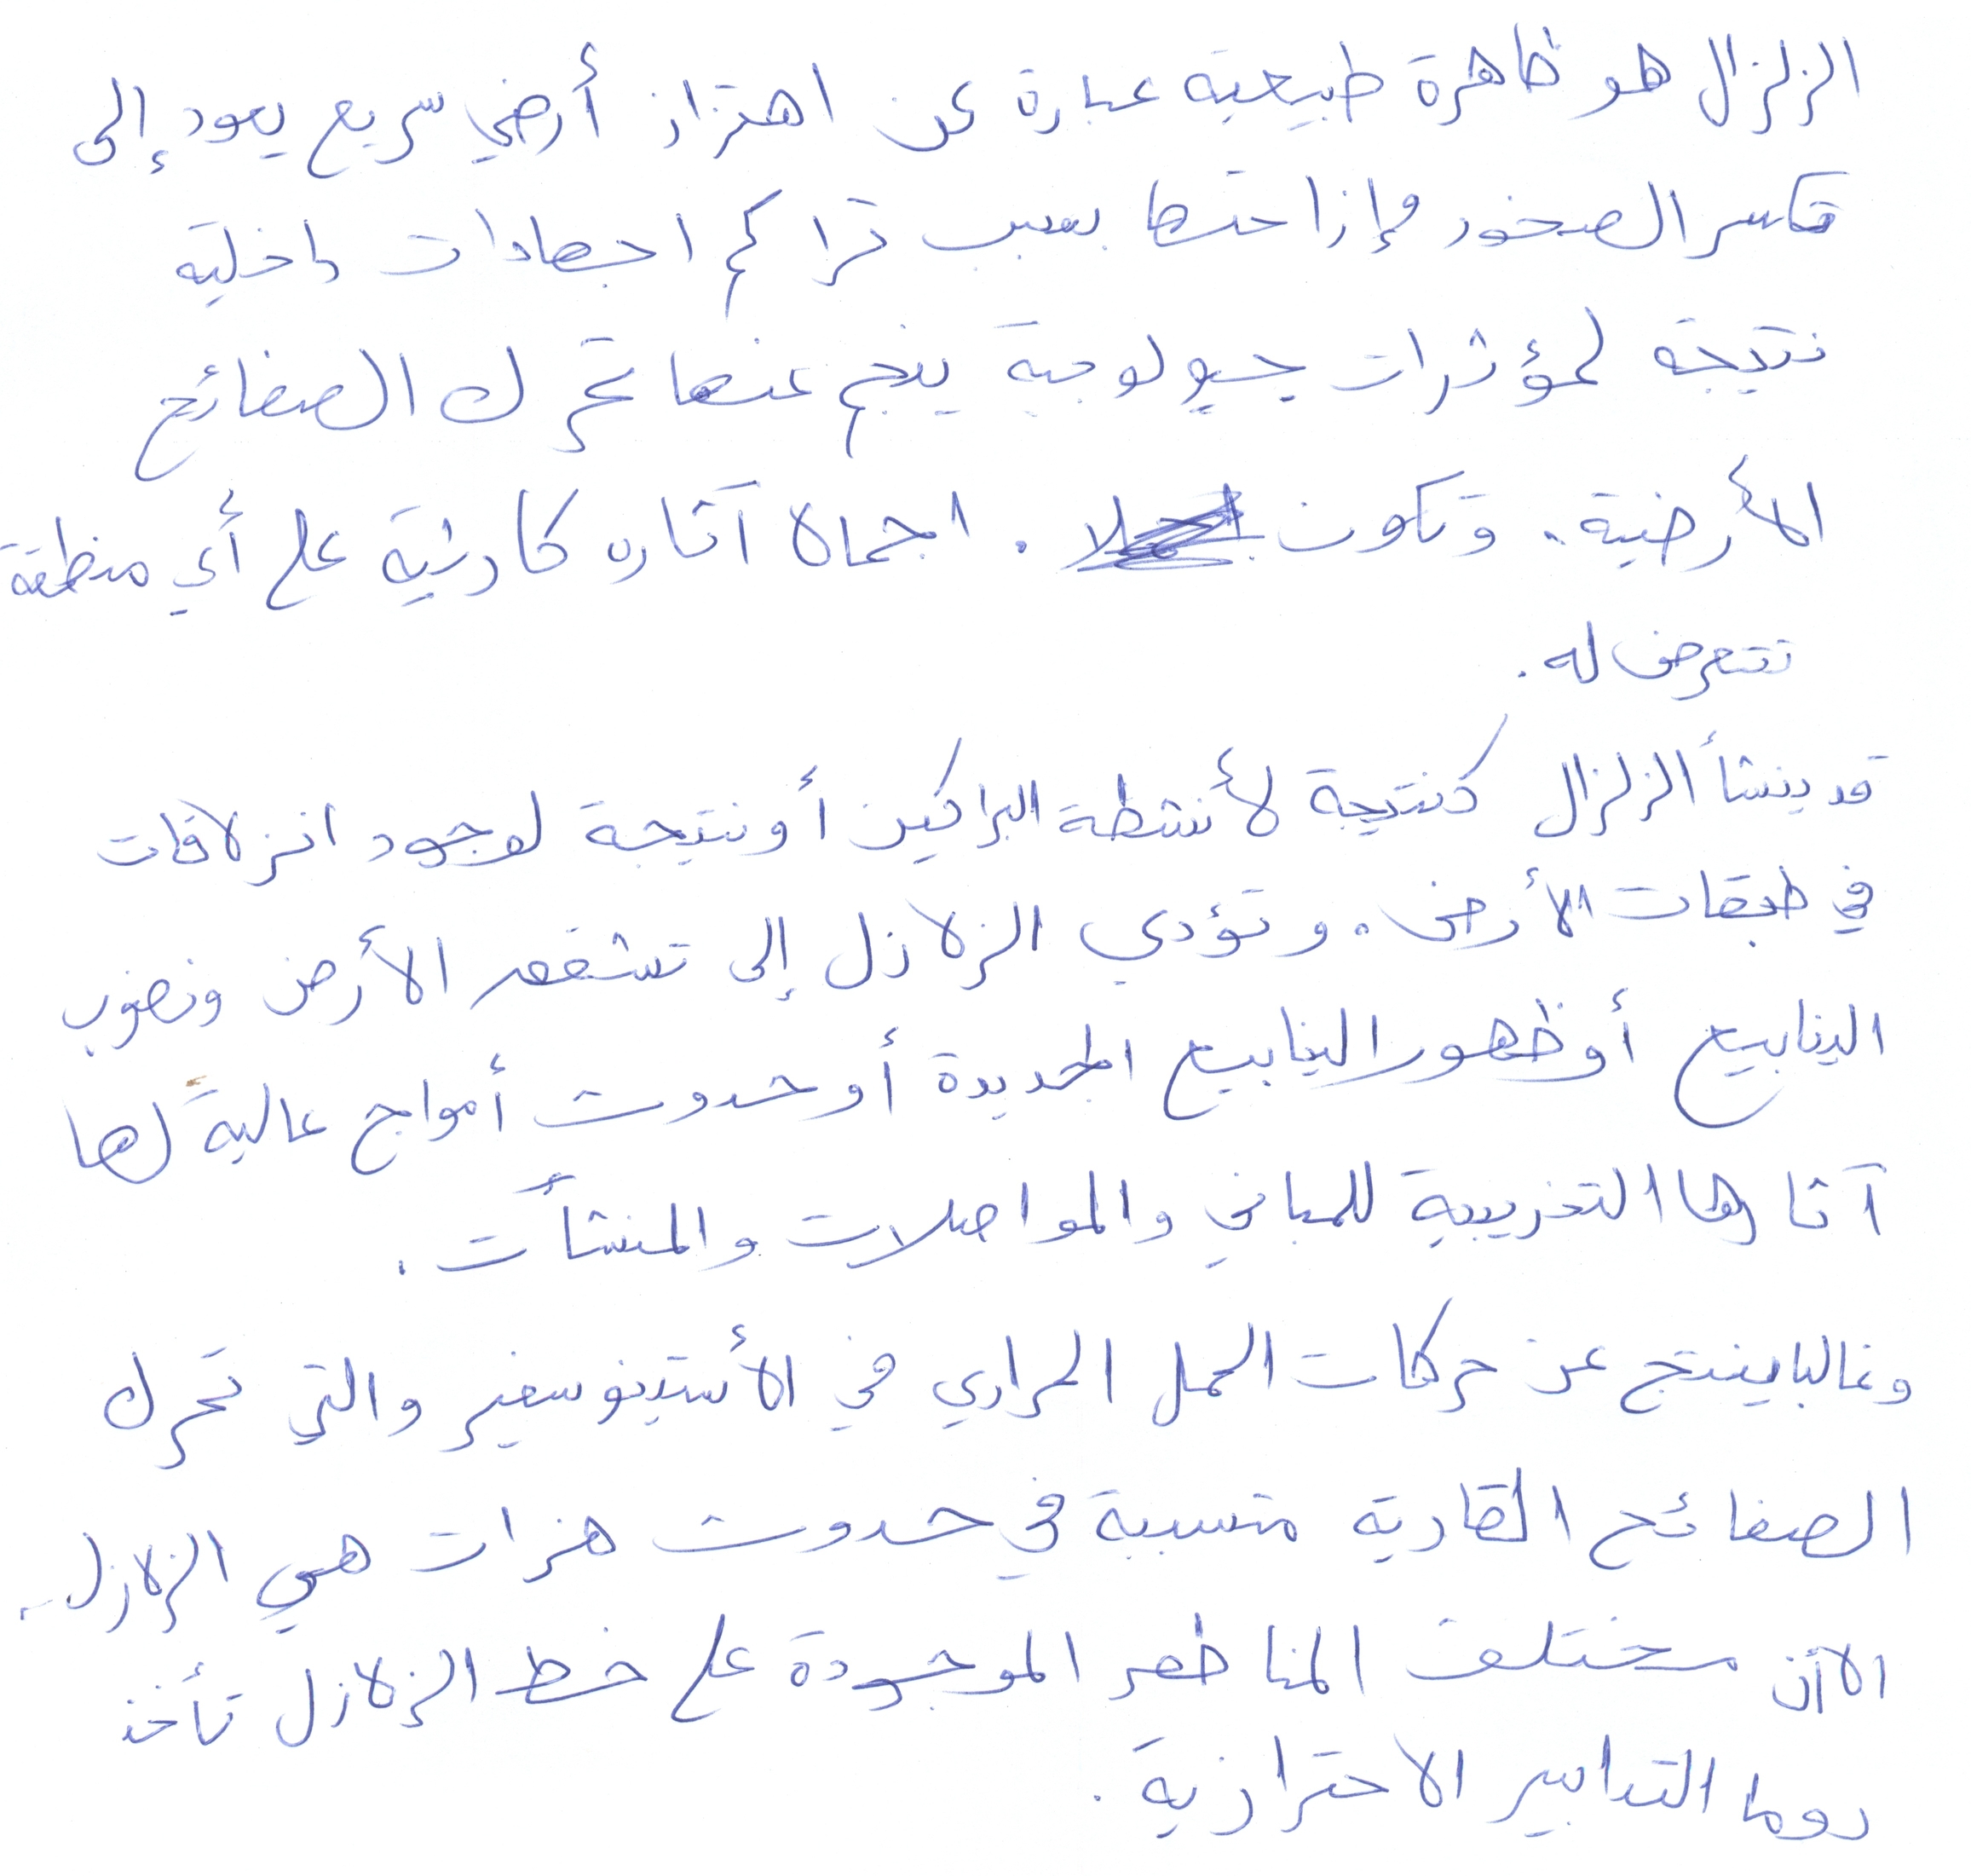 الزلزال هو ظاهرة طبيعية عبارة عن اهتزاز أرضي سريع يعود إلى
تكسر الصخور وإزاحتها بسبب تراكم اجهادات داخلية
نتيجة لمؤثرات جيولوجية ينجم عنها تحرك الصفائح
الأرضية. وتكون . اجمالا آثاره كارثية على أي منطقة
تتعرض له.
قد ينشأ الزلزال كنتيجة لأنشطة البراكين أو نتيجة لوجود انزلاقات
في طبقات الأرض. وتؤدي الزلازل إلى تشقق الأرض ونضوب
الينابيع أو ظهور الينابيع الجديدة أو حدوث أمواج عالية لها
آثارها التخريبية للمباني والمواصلات والمنشآت.
وغالبا ينتج عن حركات الحمل الحراري في الأستينوسفير والتي تحرك
الصفائح القارية متسببة في حدوث هزات هي الزلازل.
الا أن مختلف المناطق الموجودة على خط الزلازل تأخذ
دوما التدابير الاحترازية.